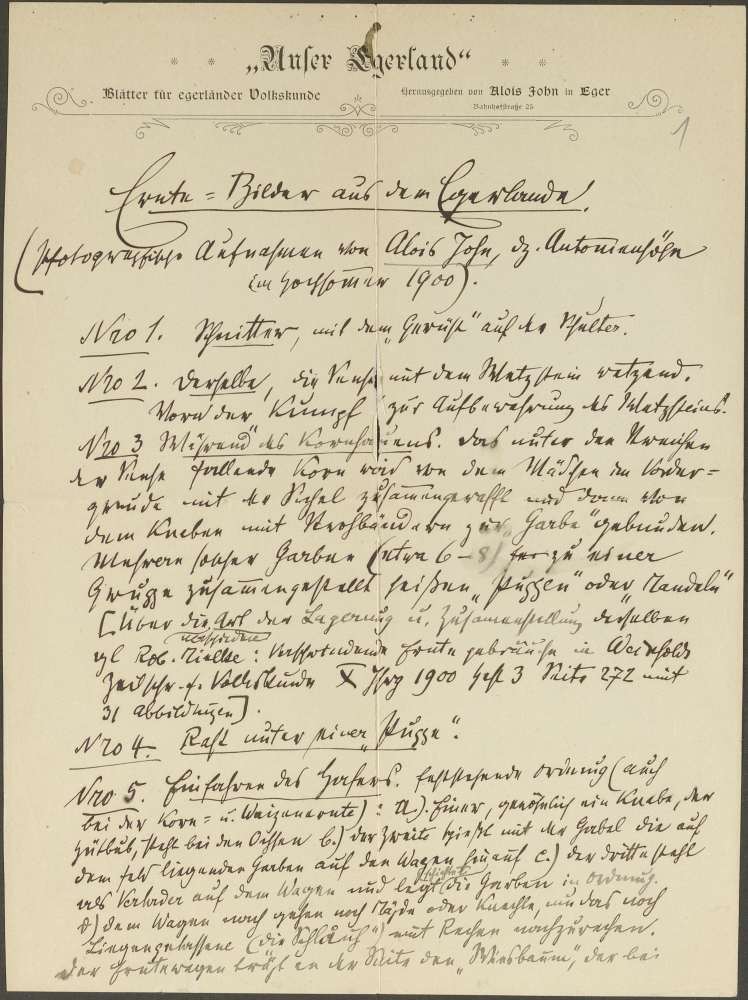 „Unser Egerland“
Blätter für egerländer Volkskunde
Herausgegeben von Alois John in Eger
Bahnhofstraße 25
1
Ernte = Bilder aus dem Egerlande!
(Photographische Aufnahmen von Alois John, dz. Antonienhöhe
im Hochsommer 1900).
Nro 1. Schnitter, mit dem „Gerüst“ auf der Schulter.
Nro 2. Derselbe, die Sense mit dem Wetzstein wetzend.
Vorn der Kumpf zur Aufbewahrung des Wetzsteins.
Nro 3 Während des Kornhauens. Das unter den Streichen
der Sense fallende Korn wird von dem Mädchen im Vorder=
grunde mit der Sichel zusammengerafft und dann von
dem Knaben mit Strohbändern zur „Garbe“ gebunden.
Mehrere solcher Garben (etwa 6–8) zu einer
Gruppe zusammengestellt heißen „Puppen“ oder „Mandeln“
[Über die Art der Lagerung u. Zusammenstellung derselben
vgl Rob. Mielke: Verschwindende Erntegebräuche in Weinholds
Zeitschr. f. Volkskunde X Jhrg 1900 Heft 3 Seite 272 mit
31 Abbildungen].
Nro 4. Rast unter einer „Puppe“.
Nro 5. Einfahren des Hafers. Feststehende Ordnung (auch
bei der Korn= u. Weizenernte): a.) Einer, gewöhnlich ein Knabe, der
Hütbub, steht bei den Ochsen b.) der Zweite spießt mit der Gabel die auf
dem Feld liegenden Garben auf den Wagen hinauf c.) der dritte steht
als auf dem Wagen und legt schichtet die Garben in Ordnung.
d) dem Wagen nach gehen noch Mägde oder Knechte, um das noch
Liegengelassene (die ) mit Rechen nachzurechen.
Der Erntewagen trägt an der Seite den „Wiesbaum“, der bei